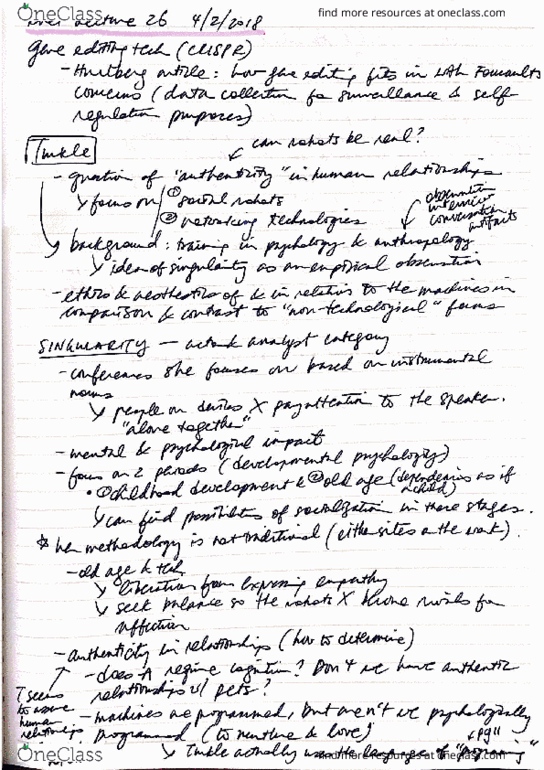 OneClass
find more resources at oneclass.com
Lecture 26 4/2/2018
Gene editing tech (CRISPR)
- Hurlberg article: how gene editing fits in with Foucault's
concerns (data collection for surveillance & self
regulation purposes)
can robots be real?
Turkle
- question of "authenticity" in human relationships
focus on ① social robots
② networking technologies
observation
interviews
conversation
artifacts
background: training in psychology & anthropology
idea of singularity as an empirical observation
- ethics & aesthetics of & in relation to the machines in
comparison & contrast to "non-technological" forms
SINGULARITY — actor & analyst category
- conferences she focuses on based on instrumental
norms
people on devices X pay attention to the speaker.
"alone together"
- mental & psychological impact
- focus on 2 periods (developmental psychology)
• ① childhood development & ② old age (dependencies as if
a child)
can find possibilities of socialization in these stages.
her methodology is not traditional (either sites or the work).
- old age & tech
liberation from expressing empathy
seek balance so the robots X become rivals for
affection
- authenticity in relationships (how to determine)
- does it require cognition? Don't we have authentic
relationships w/ pets?
T seems
to assume
human
relationships
- machines are programmed, but aren't we psychologically
programmed (to nurture & love)
Turkle actually uses the language of
OneClass
find more resources at oneclass.com